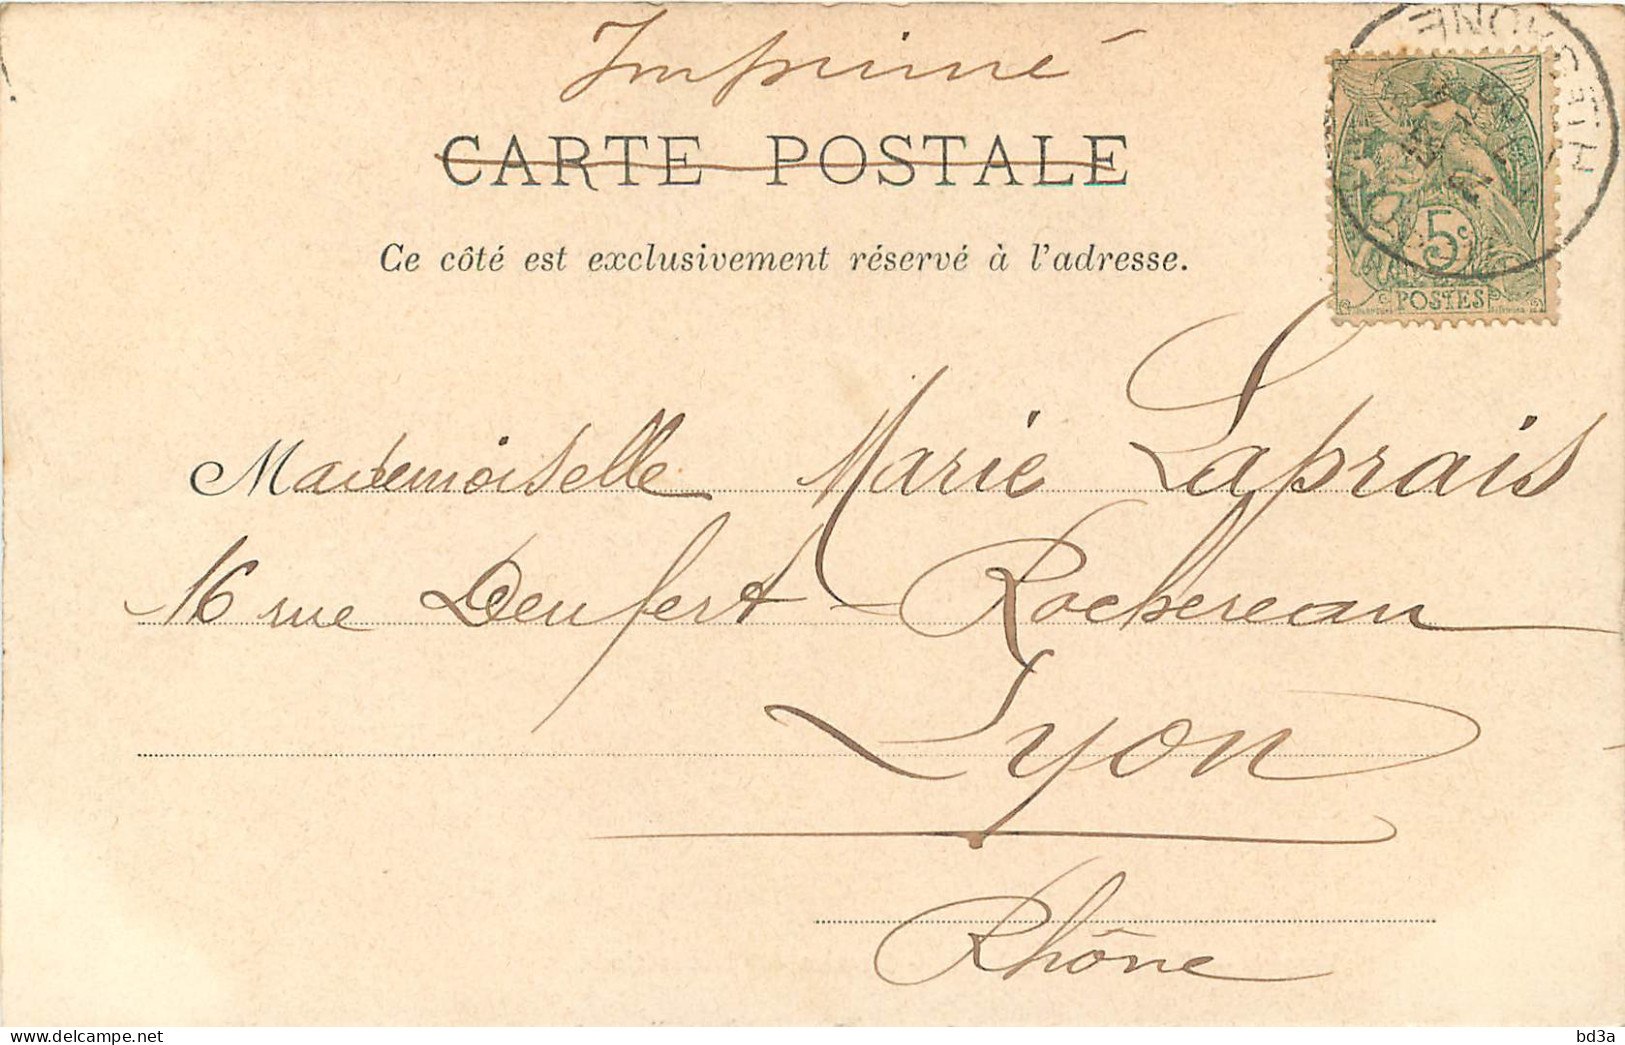 Imprimé
CARTE POSTALE
Ce côté est exclusivement réservé à l'adresse.
5c
POSTES
Mademoiselle Marie Laprais
16 rue Denfert-Rochereau
Lyon
Rhône
bd3a